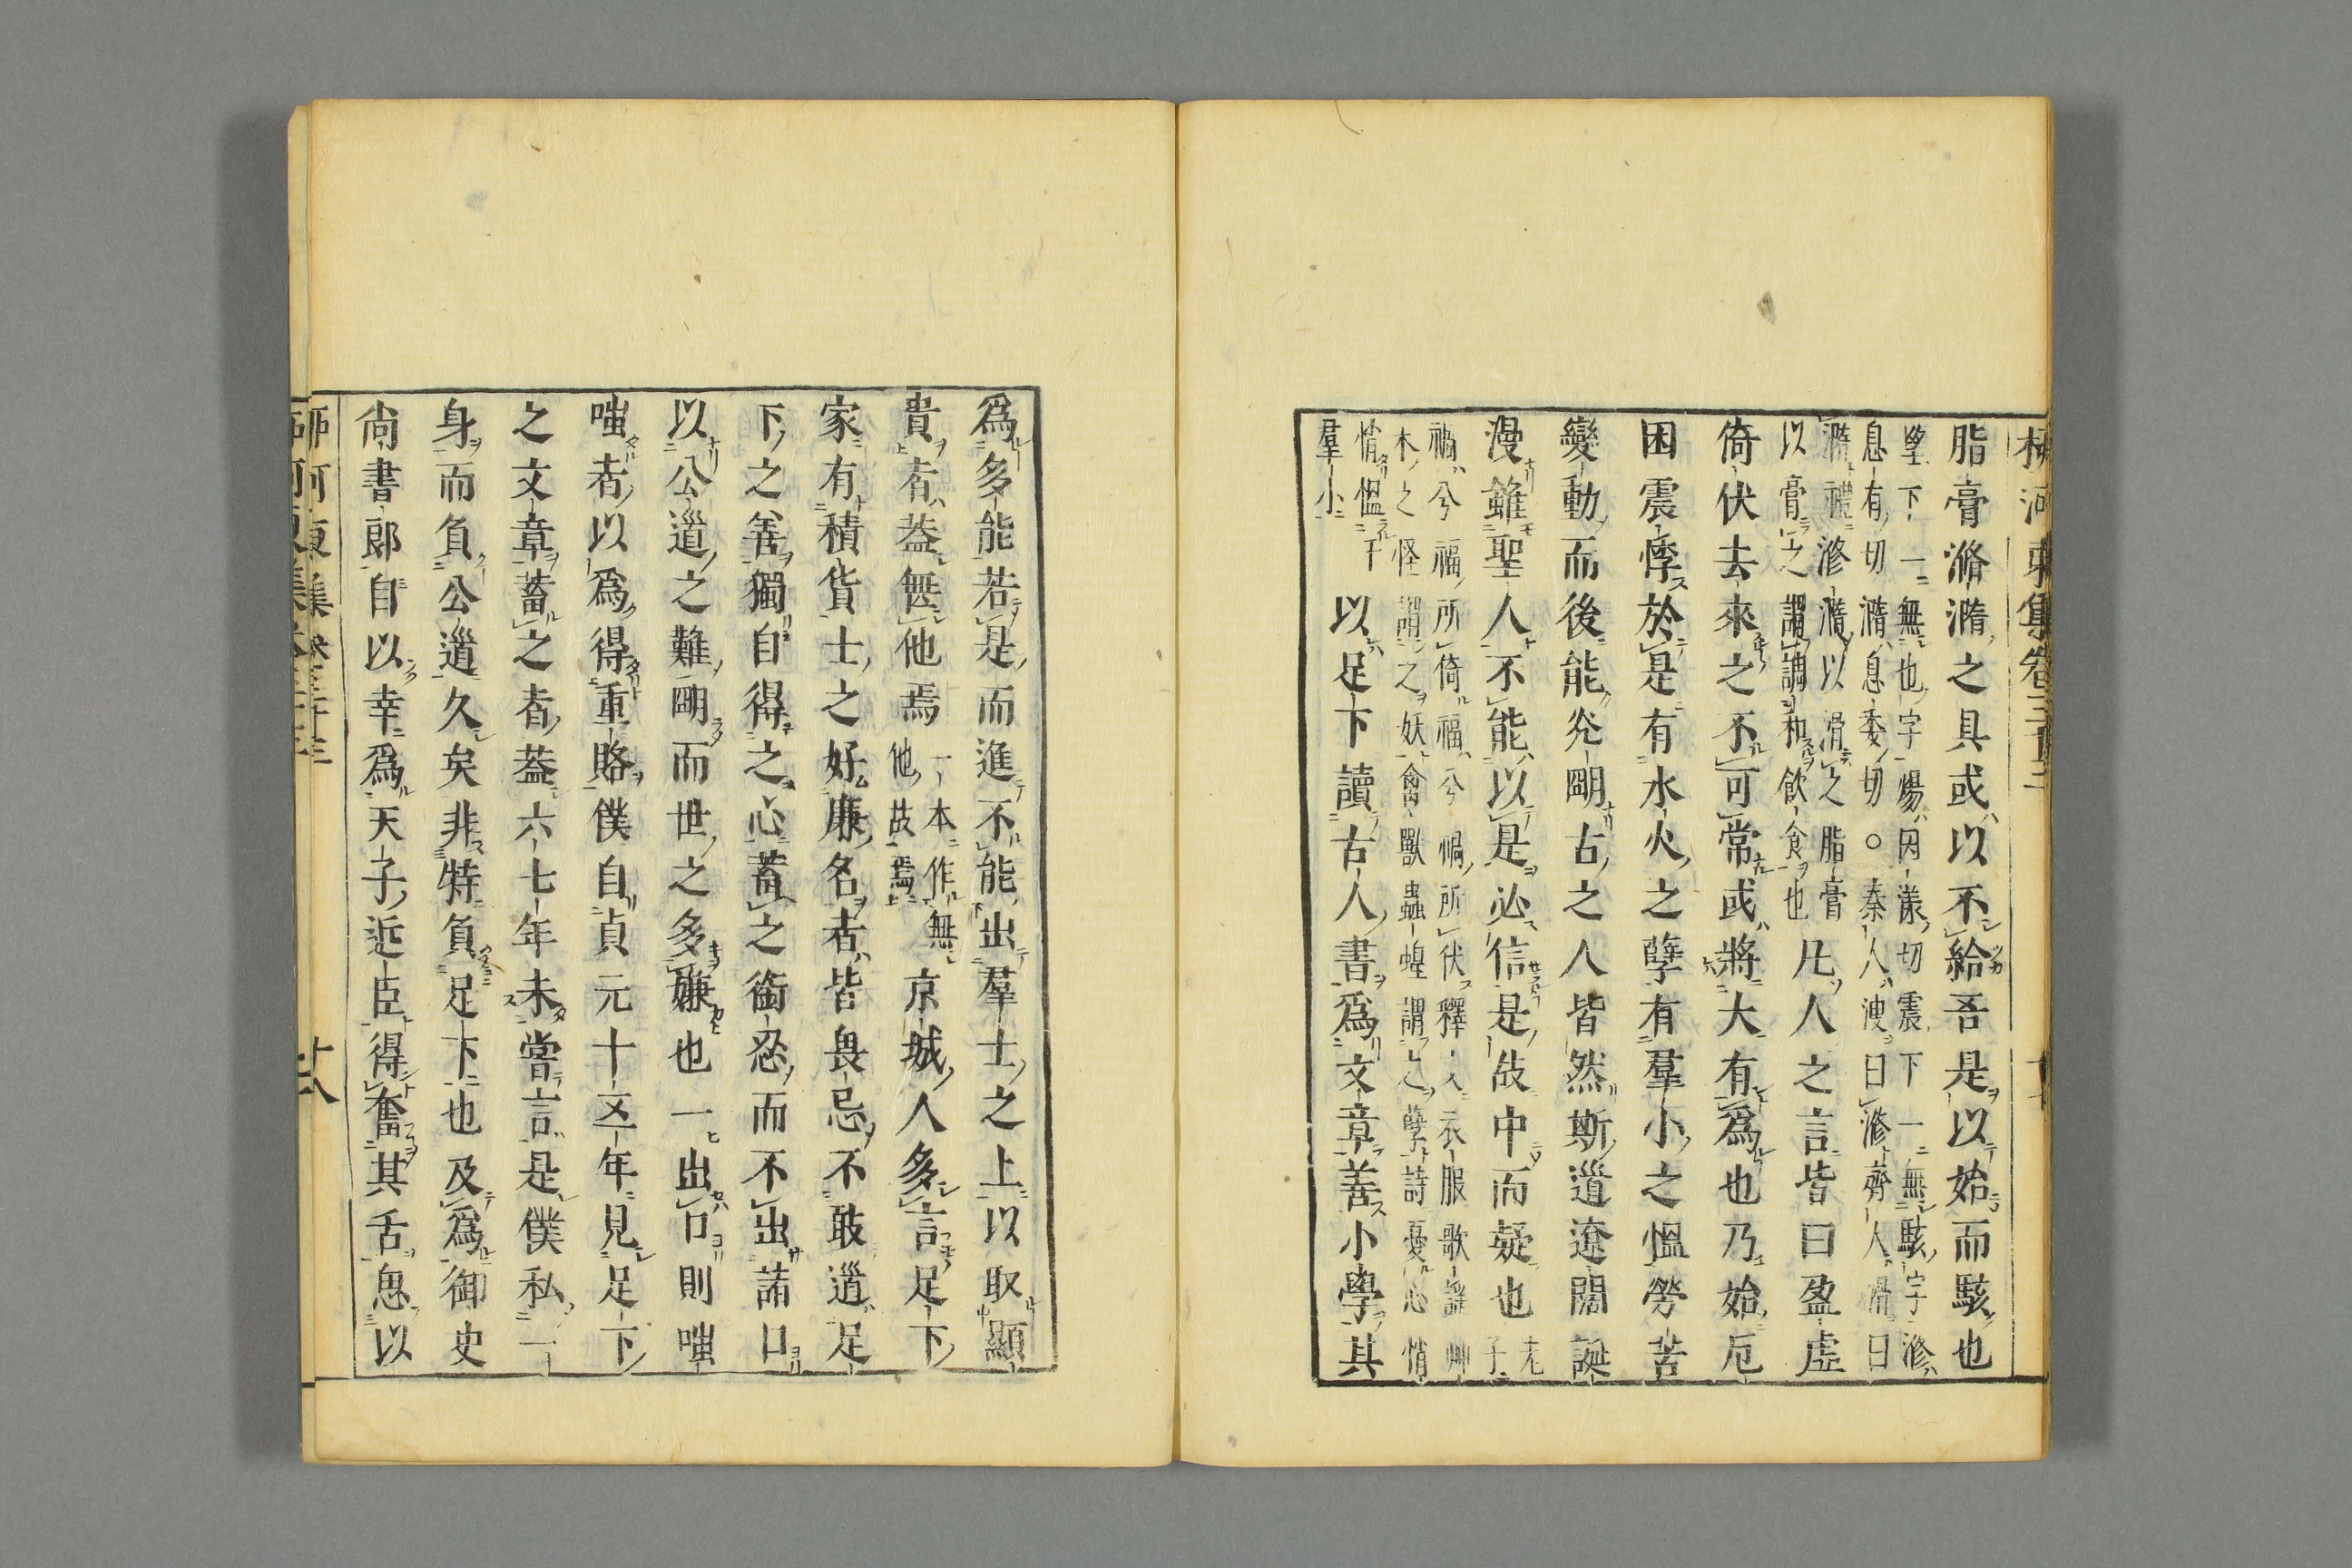 柳河東集卷三十三
脂膏滫瀡之具或以不給吾是以始而駭也
瑩下一無也字煬因漾切震下一無駭字滫
息有切瀡息委切○秦人溲曰滫齊人滑曰
瀡禮滫瀡以滑之脂膏
以膏之謂調和飲食也
凡人之言皆曰盈虛
倚伏去來之不可常或將大有爲也乃始厄
困震悸於是有水火之孽有羣小之慍勞苦
變動而後能光明古之人皆然斯道遼闊誕
漫雖聖人不能以是必信是故中而疑也
老
子
禍兮福所倚福兮禍所伏釋文衣服歌謠艸
木之怪謂之妖禽獸蟲蝗謂之孽詩憂心悄
悄慍于
羣小
以足下讀古人書爲文章善小學其
爲多能若是而進不能出羣士之上以取顯
貴者蓋無他焉
一本作無
他故焉
京城人多言足下
家有積貨士之好廉名者皆畏忌不敢道足
下之善獨自得之心蓄之銜忍而不出諸口
以公道之難明而世之多嫌也一出口則嗤
嗤者以爲得重賂僕自貞元十五年見足下
之文章蓄之者蓋六七年未嘗言是僕私一
身而負公道久矣非特負足下也及爲御史
尚書郎自以幸爲天子近臣得奮其舌思以
柳河東集卷三十三
十八